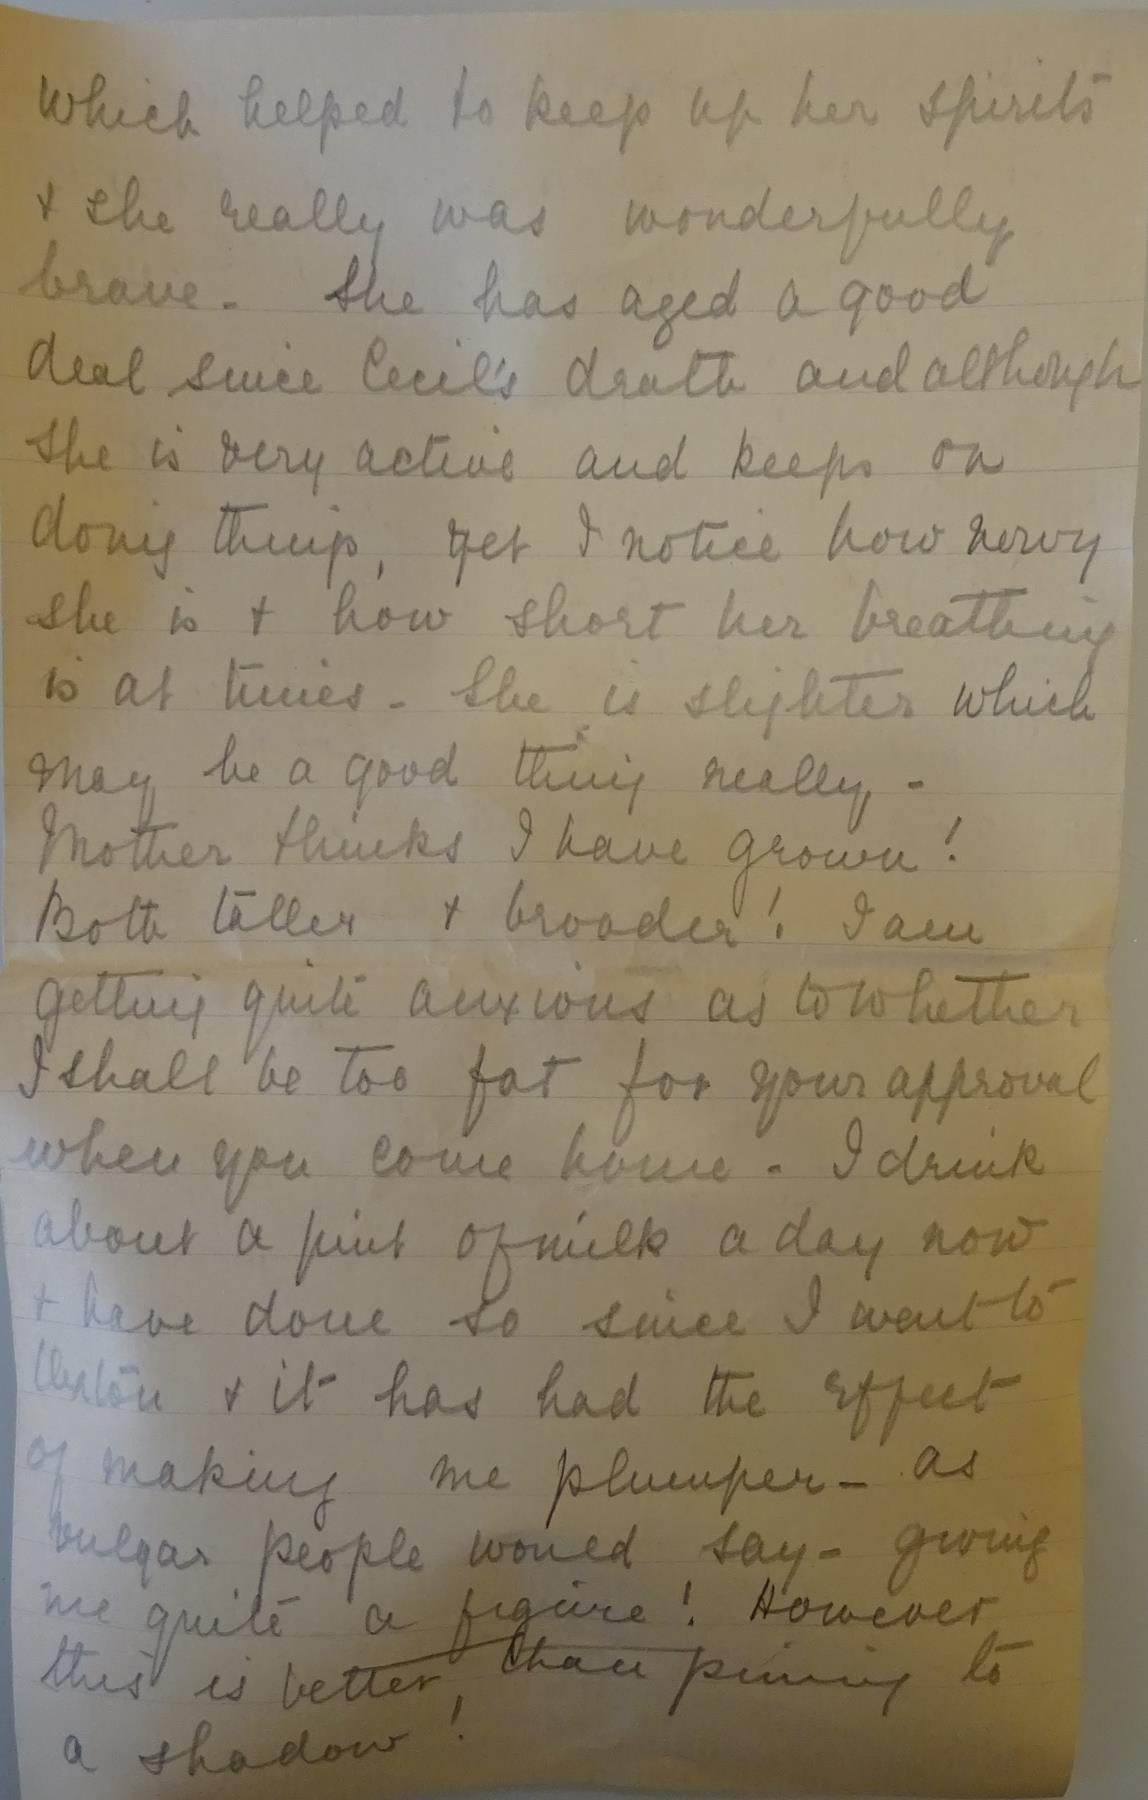 which helped to keep up her spirits
+ she really was wonderfully
brave - She has aged a good
deal since Cecil's death and although
she is very active and keeps on
doing things, yet I notice how nervy
she is + how short her breathing
is at times - She is slighter which
may be a good thing really, -
Mother thinks I have grown!
Both taller + broader! I am
getting quite anxious as to whether
I shall be too fat for your approval
when you come home - I drink
about a pint of milk a day now
+ have done so since I went to
+ it has had the effect
of making me plumper - as
vulgar people would say - giving
me quite a figure! However
this is better, than pining to
a shadow!